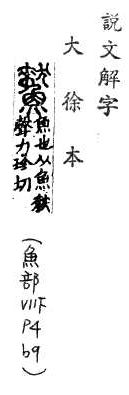 說文解字
大徐本
魚也从魚
聲力珍切
(魚部VIII下P4b9)